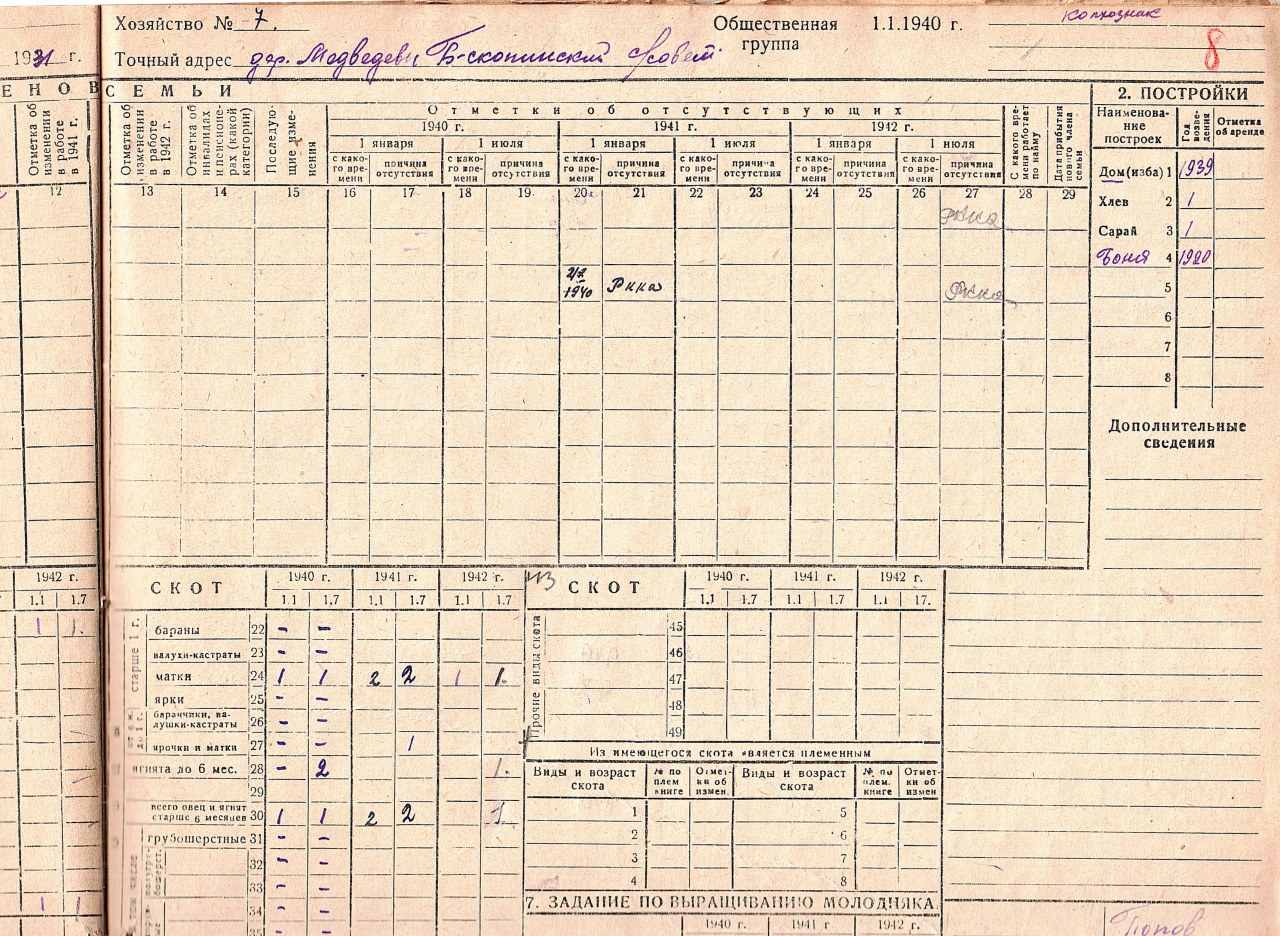 Хозяйство № 7.
Общественная группа 1.1.1940 г. колхозник
8
1931 г.
Точный адрес дер. Медведевы Б-скопинский с/совет
ЕНОВ СЕМЬИ
Отметка об изменении в работе в 1941 г.
Отметка об изменении в работе в 1942 г.
Отметка об инвалидах и пенсионерах (какой категории)
Последующие изменения
Отметки об отсутствующих
1940 г. 1941 г. 1942 г.
1 января 1 июля 1 января 1 июля 1 января 1 июля
с какого времени причина отсутствия с какого времени причина отсутствия с какого времени причина отсутствия с какого времени причина отсутствия с какого времени причина отсутствия с какого времени причина отсутствия
С какого времени работает по найму
Дата прибытия нового члена семьи
12 13 14 15 16 17 18 19 20 21 22 23 24 25 26 27 28 29
Ркка
1940 Ркка Ркка
2. ПОСТРОЙКИ
Наименование построек Год возведения Отметка об аренде
Дом (изба) 1 1939
Хлев 2 1
Сарай 3 1
Баня 4 1920
5
6
7
8
Дополнительные сведения
1942 г.
1.1 1.7
1 1.
1 1
СКОТ 1940 г. 1941 г. 1942 г.
1.1 1.7 1.1 1.7 1.1 1.7
старше 1 г.
бараны 22 - -
валухи-кастраты 23
матки 24 1 1 2 2 1 1.
ярки 25 - -
до 1 г.
баранчики, валушки-кастраты 26 - -
ярочки и матки 27 - - 1
ягнята до 6 мес. 28 - 2 1.
29
всего овец и ягнят старше 6 месяцев 30 1 1 2 2 1.
в том числе
грубошерстные 31 - -
32 - -
33 - -
34 - -
35
СКОТ 1940 г. 1941 г. 1942 г.
1.1 1.7 1.1 1.7 1.1 17.
Прочие виды скота
45
46
47
48
49
Из имеющегося скота является племенным
Виды и возраст скота № по плем книге Отметки об измен. Виды и возраст скота № по плем. книге Отметки об измен
1 5
2 6
3 7
4 8
7. ЗАДАНИЕ ПО ВЫРАЩИВАНИЮ МОЛОДНЯКА
1940 г. 1941 г. 1942 г.
Попов